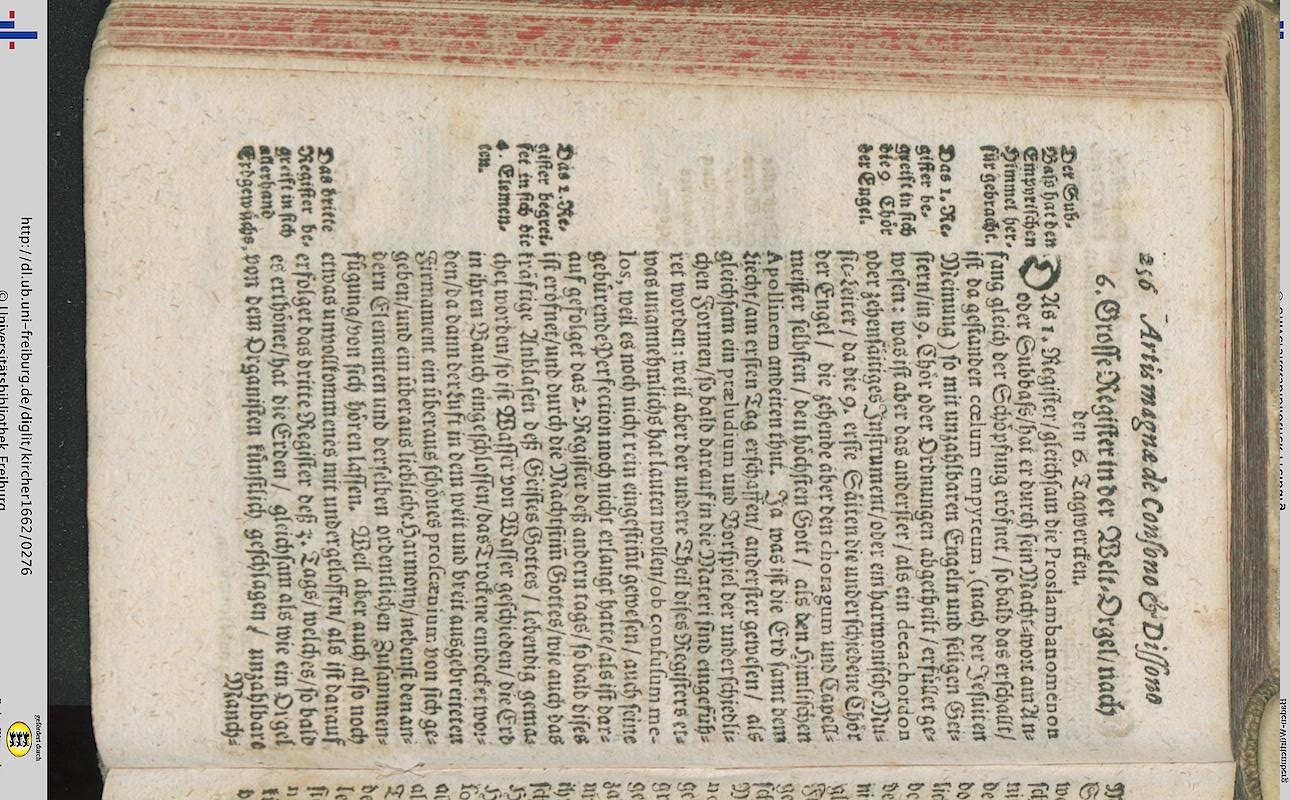 256 Artis magnæ de Consono & Dissono
6. Grosse Register in der Welt-Orgel / nach
den 6. Tagwercken.
DAs 1. Register / gleichsam die Proslambanomenon
oder Subbaß / hat er durch sein Macht-wort am An-
fang gleich der Schöpfung eröfnet / so bald das erschallt /
ist da gestanden cœlum empyreum, (nach der Jesuiten
Meinung) so mit unzalbaren Engeln und seligen Gei-
stern / in 9. Chör oder Ordnungen abgetheilt / erfüllet ge-
wesen: was ist aber das anderster / als ein decachordon
oder zehensäitiges Instrument / oder ein harmonische Mu-
sic-Leiter / da die 9. erste Säiten die underschiedene Chör
der Engel / die zehende aber den choragum und Capell-
meister selbsten / den höchsten Gott / als den Himlischen
Apollinem andeiten thut. Ja was ist die Erd samt dem
Liecht / am ersten Tag erschaffen / anderster gewesen / als
gleichsam ein præludium und Vorspiel der underschiedli-
chen Formen / so bald darauf in die Materi sind eingefüh-
ret worden: weil aber der undere Theil dises Registers et-
was unannehmlichs hat lauten wollen / ob confusum me-
los, weil es noch nicht rein eingestimt gewesen / auch seine
gebürende Perfection noch nicht erlangt hatte / als ist dar-
auf gefolget das 2. Register deß andern tags / so bald dises
ist eröfnet / und durch die Machtstim Gottes / wie auch das
kräftige Anblasen deß Geistes Gottes / lebendig gema-
chet worden / so ist Wasser von Wasser geschieden / die Erd
in ihren Bauch eingeschlossen / das Trockene entdecket wor-
den / da dann der Luft in dem weit und breit ausgebreiteten
Firmament ein überaus schönes proscænium von sich ge-
geben / und ein überaus liebliche Harmony / nebenst denan-
dern Elementen und derselben ordentlichen Zusammen-
fügung / von sich hören lassen. Weil aber auch also noch
etwas unvollkommenes mit undergeloffen / als ist darauf
erfolget das dritte Register deß 3. Tags / welches / so bald
es erthönet / hat die Erden / gleichsam als wie ein Orgel
von dem Organisten künstlich geschlagen / unzahlbare
Manch-
Der Sub-
Baß hat den
Empyrischen
Himmel her-
für gebracht.
Das 1. Re-
gister be-
greift in sich
die 9. Chör
der Engel.
Das 2. Re-
gister begrei-
fet in sich die
4. Elemen-
ten.
Das dritte
Register be-
greift in sich
allerhand
Erdgewächs.
http://dl.ub.uni-freiburg.de/diglit/kircher1662/0276
© Universitätsbibliothek Freiburg
gefördert durch